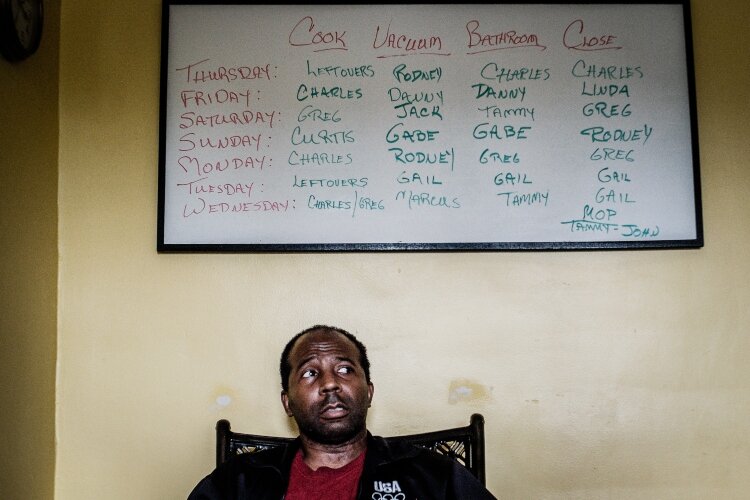 COOK VACUUM BATHROOM CLOSE
THURSDAY: LEFTOVERS RODNEY CHARLES CHARLES
FRIDAY: CHARLES DANNY DANNY LINDA
SATURDAY: GREG JACK TAMMY GREG
SUNDAY: CURTIS GABE GABE RODNEY
MONDAY: CHARLES RODNEY GREG GREG
TUESDAY: LEFTOVERS GAIL GAIL GAIL
WEDNESDAY: CHARLES/GREG MARCUS TAMMY GAIL
MOP
TAMMY- JOHN
USA